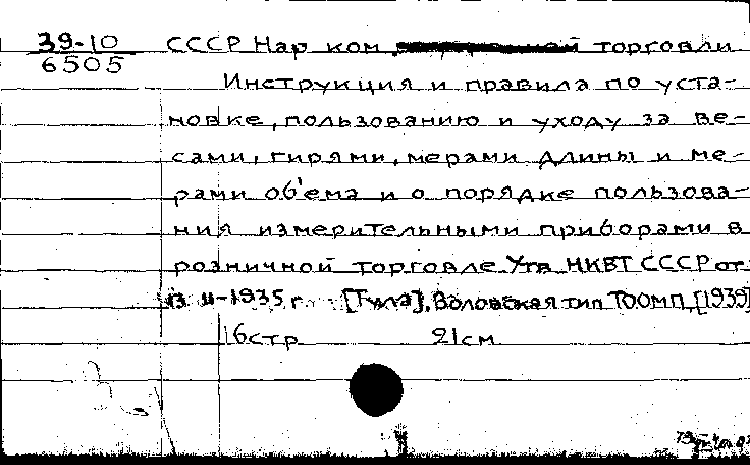 39-10
6505
СССР Нар ком торговли
Инструкция и правила по уста-
новке, пользованию и уходу за ве-
сами, гирями, мерами длины и ме-
рами об'ема и о порядке пользова-
ния измерительными приборами в
розничной торговле. Утв. НКВТ СССР от
13 II-1935 г. [Тула], Воловская тип ТООМП, [1939]
16стр 21см